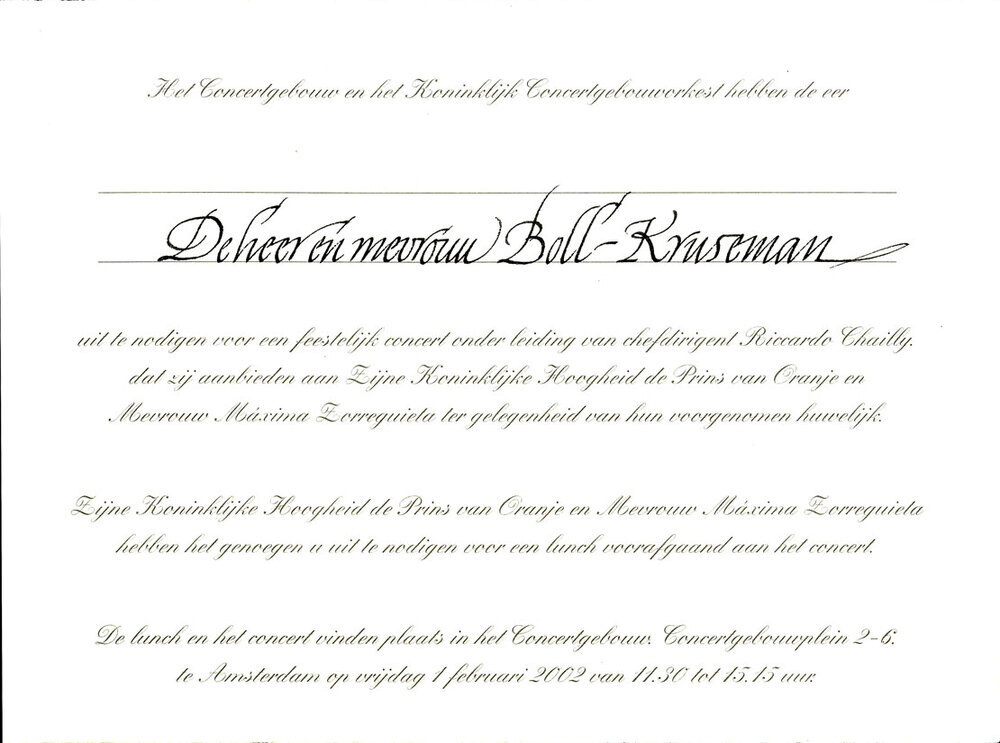 Het Concertgebouw en het Koninklijk Concertgebouworkest hebben de eer
De heer en mevrouw Boll-Kruseman
uit te nodigen voor een feestelijk concert onder leiding van chefdirigent Riccardo Chailly,
dat zij aanbieden aan Zijne Koninklijke Hoogheid de Prins van Oranje en
Mevrouw Máxima Zorreguieta ter gelegenheid van hun voorgenomen huwelijk.
Zijne Koninklijke Hoogheid de Prins van Oranje en Mevrouw Máxima Zorreguieta
hebben het genoegen u uit te nodigen voor een lunch voorafgaand aan het concert.
De lunch en het concert vinden plaats in het Concertgebouw, Concertgebouwplein 2-6,
te Amsterdam op vrijdag 1 februari 2002 van 11.30 tot 15.15 uur.